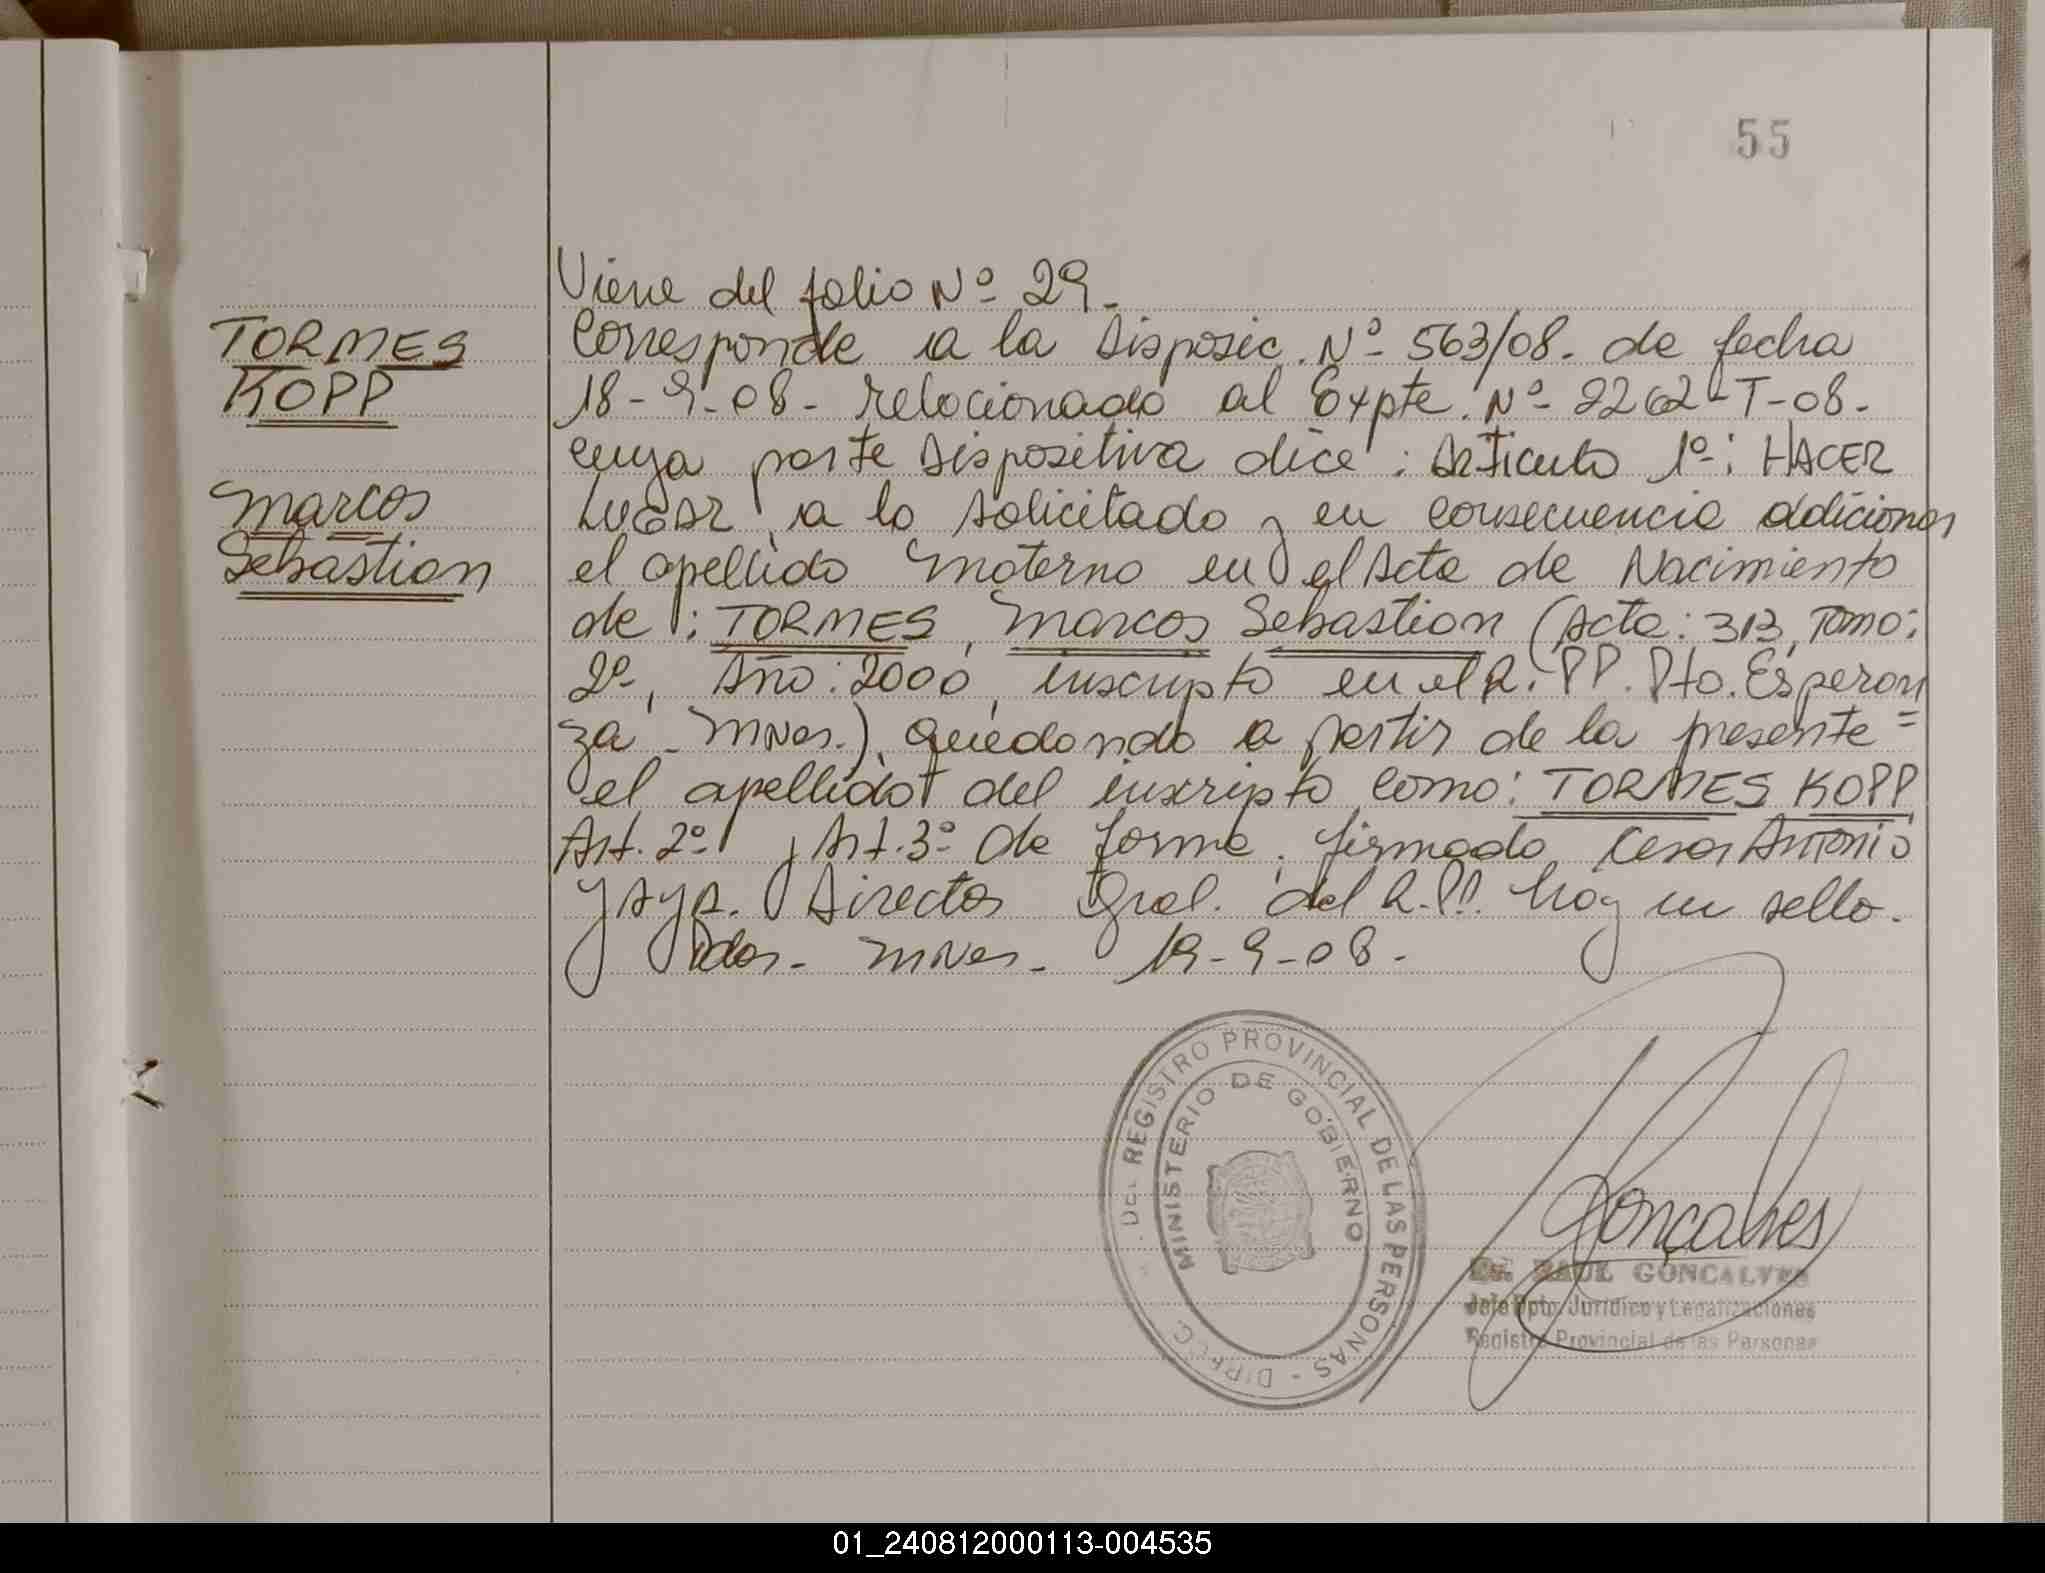 55
Viene del folio Nº 29.
TORMES
KOPP
Marcos
Sebastian
Corresponde a la Disposic. Nº 563/08. de fecha
18-9-08- relacionado al Expte. Nº 2262-T-08.
cuya parte dispositiva dice: Articulo 1º: HACER
LUGAR a lo solicitado y en consecuencia adicionar
el apellido materno en el Acta de Nacimiento
de: TORMES, Marcos Sebastian (Acta: 313, Tomo:
2º, Año: 2000, inscripto en el R. PP. Pto. Esperan
za - Mnes.), quedando a partir de la presente =
el apellido del inscripto como: TORMES KOPP
Art. 2º y Art. 3º de forma. firmado Cesar Antonio
Director Gral. del R.PP. hay un sello.
Pdas. Mnes. 19-9-08.
DIRECC. DEL REGISTRO PROVINCIAL DE LAS PERSONAS -
MINISTERIO DE GOBIERNO
Goncalves
RAUL GONCALVES
Jefe Dpto. Jurídico y Legalizaciones
Registro Provincial de las Personas
01_240812000113-004535